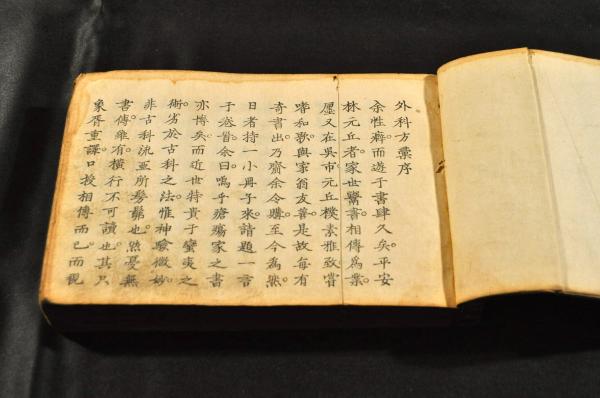 外科方彙序
余性癖而遊于書肆久矣。平安
林元丘者。家世鬻書。相傳為業。
廛又在吳市。元丘樸素雅致。嘗
嗜和歌。與家翁友善。是故每有
奇書出。乃齎余令購。至今為然。
日者持一小冊子來。請題一言
于卷首。余曰嗚乎瘡瘍家之書
亦博矣。而近世特貴于蠻夷之
術。劣於古科之法。惟神驗微妙。
非古科流亞所髣髴也。然憂無
書傳。雖有橫行不可讀也。其只
象胥重譯。口授相傳而已。而視